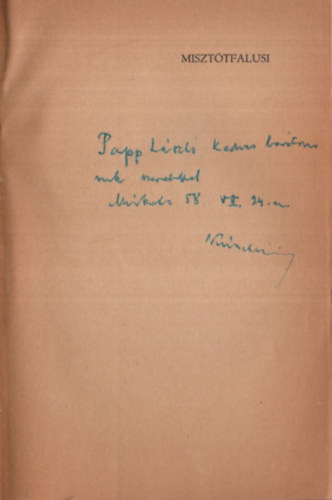 MISZTÓTFALUSI
Papp László kedves barátom
nak szeretettel
Miskolc 58 VII. 24-én